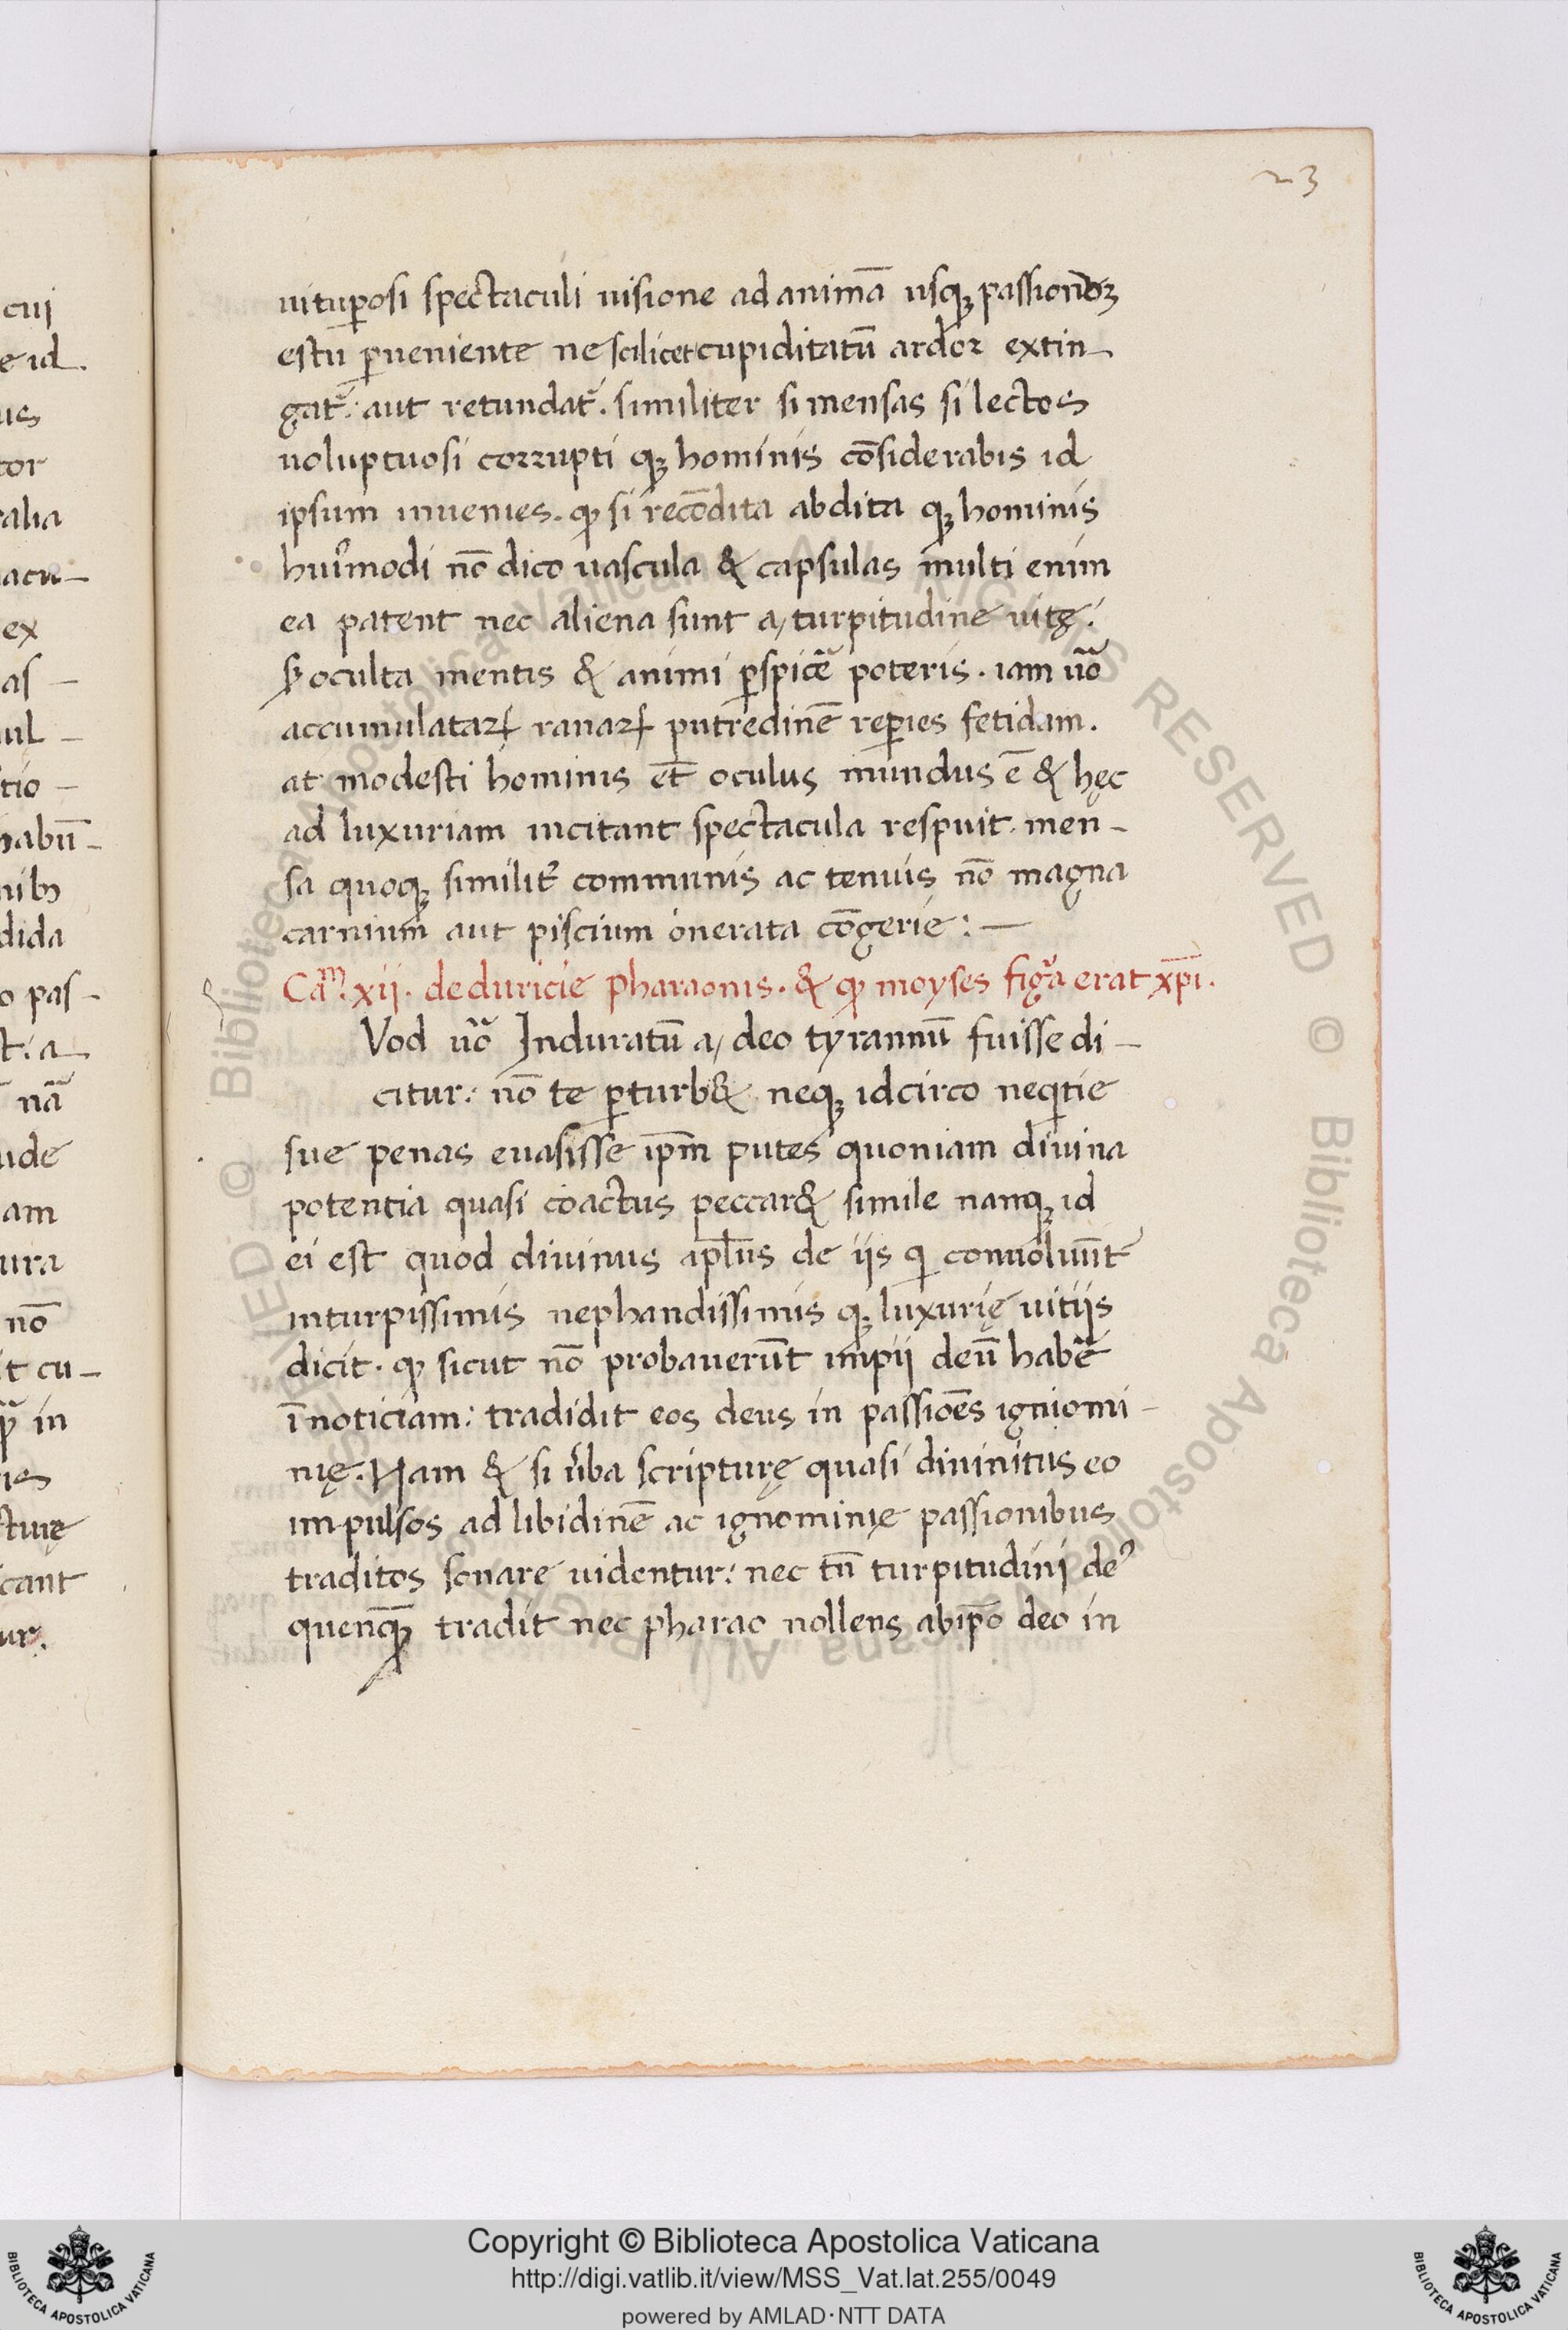 23
uitup̱osi spectaculi uisione ad animā usq; passionē
estu p̱ueniente ne scilicet cupiditatū ardor extin-
gat᷑: aut retundat᷑. similiter si mensas si lectos
uoluptuosi corrupti q; hominis cōsiderabis id
ipsum inuenies. qꝫ si recōdita abdita q; hominis
hui᷒modi nō dico uascula & capsulas multi enim
ea patent nec aliena sunt a, turpitudine uitę:
Sꝫ oculta mentis & animi p̱spicē poteris. iam uō
accumulataꝝ ranaꝝ putredinē rep̱ies fetidam.
at modesti hominis et̄ oculus mundus ē & hęc
ad luxuriam incitant spectacula respuit. men-
sa quoq; similit᷑ communis ac tenuis nō magna
carnium aut piscium onerata cōgerie: —
Cam̄. xij. de duricie pharaonis. & qꝫ moyses figᵃ erat xp̄i.
Vod uō Induratū a, deo tyrannū fuisse di-
citur: nō te p̱turb& neq; idcirco neqtie
sue penas euasisse ip̄m putes quoniam diuina
potentia quasi coactus peccar& simile nanq; id
ei est quod diuinus apl̄us de ijs qi conuoluūt
inturpissimis nephandissimis q; luxurię uitijs
dicit. qꝫ sicut nō probauerūt impij deū habē
ī noticiam: tradidit eos deus in passiōes igniomi-
nię. Nam & si u᷑ba scripturę quasi diuinitus eo
impulsos ad libidinē ac ignominię passionibus
traditos sonare uidentur: nec tn̄ turpitudini de᷒
quenq̄ꝫ tradit nec pharao nollens abip̄o deo in
cui
e id.
us
tor
ralia
acu-
ex
as-
ul-
tio-
habū-
nibꝫ
dida
o pas-
t: a
nā
ude
am
ura
nō
it cu-
in
cant
ur.
Copyright © Biblioteca Apostolica Vaticana
http://digi.vatlib.it/view/MSS_Vat.lat.255/0049
powered by AMLAD·NTT DATA